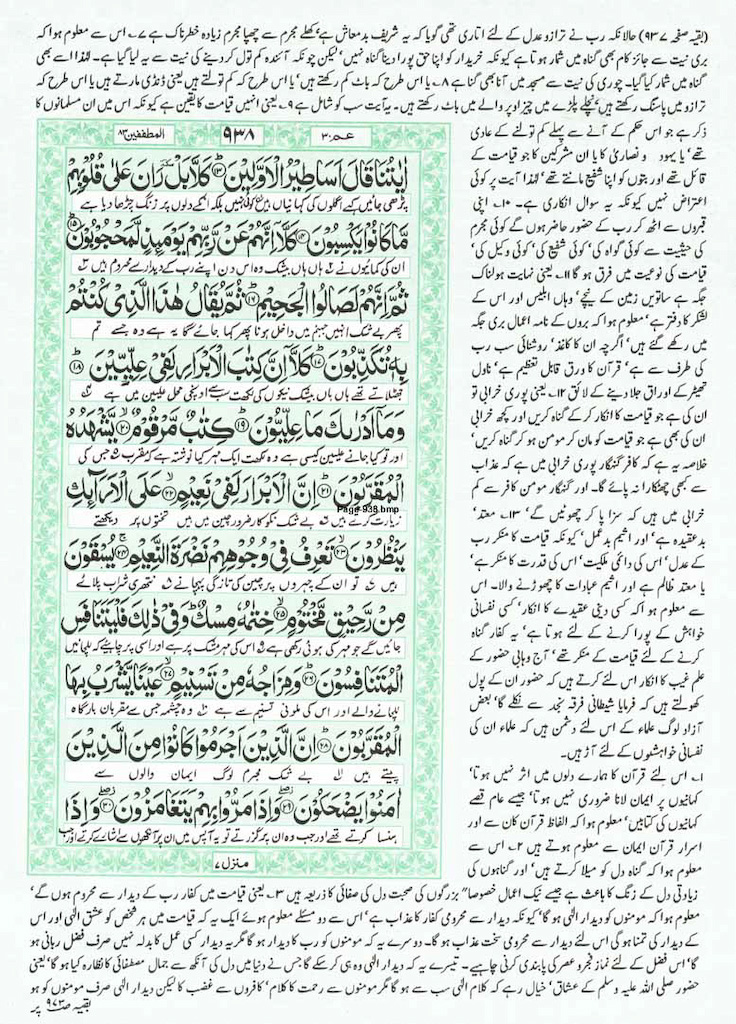 (بقیہ صفحہ ۹۳۷) حالانکہ رب نے ترازو عدل کے لئے اتاری تھی گویا کہ یہ شریف بدمعاش ہے، کھلے مجرم سے چھپا مجرم زیادہ خطرناک ہے ۷۔ اس سے معلوم ہوا کہ
بری نیت سے جائز کام بھی گناہ میں شمار ہوتا ہے کیونکہ خریدار کو اپنا حق پورا دینا گناہ نہیں، لیکن چونکہ آئندہ کم تول کر دینے کی نیت سے یہ لیا گیا ہے۔ لہٰذا اسے بھی
گناہ میں شمار کیا گیا۔ چوری کی نیت سے مسجد میں آنا بھی گناہ ہے ۸۔ یا اس طرح کہ باٹ کم رکھتے ہیں، یا اس طرح کہ کم تولتے ہیں یعنی ڈنڈی مارتے ہیں یا اس طرح کہ
ترازو میں پاسنگ رکھتے ہیں، نچلے پلڑے میں چیز اوپر والے میں باٹ رکھتے ہیں۔ یہ آیت سب کو شامل ہے ۹۔ یعنی انہیں قیامت کا یقین ہے کیونکہ اس میں ان مسلمانوں کا
ذکر ہے جو اس حکم کے آنے سے پہلے کم تولنے کے عادی
تھے، یا یہود و نصاریٰ کا یا ان مشرکین کا جو قیامت کے
قائل تھے اور بتوں کو اپنا شفیع مانتے تھے، لہٰذا آیت پر کوئی
اعتراض نہیں کیونکہ یہ سوال انکاری ہے۔ ۱۰۔ اپنی
قبروں سے اٹھ کر رب کے حضور حاضر ہوں گے کوئی مجرم
کی حیثیت سے کوئی گواہ کی، کوئی شفیع کی، کوئی وکیل کی،
قیامت کی نوعیت میں فرق ہو گا ۱۱۔ یعنی نہایت ہولناک
جگہ ہے ساتویں زمین کے نیچے، وہاں ابلیس اور اس کے
لشکر کا دفتر ہے، معلوم ہوا کہ بروں کے نامہ اعمال بری جگہ
میں رکھے گئے ہیں، اگرچہ ان کا کاغذ، روشنائی سب رب
کی طرف سے ہے، قرآن کا ورق قابل تعظیم ہے، ناول
تھیٹر کے اوراق جلا دینے کے لائق ۱۲۔ یعنی پوری خرابی تو
ان کی ہے جو قیامت کا انکار کر کے گناہ کریں اور کچھ خرابی
ان کی بھی ہے جو قیامت کو مان کر مومن ہو کر گناہ کریں،
خلاصہ یہ ہے کہ کافر گنہگار پوری خرابی میں ہے کہ عذاب
سے کبھی چھٹکارا نہ پائے گا۔ اور گنہگار مومن کافر سے کم
خرابی میں ہیں کہ سزا پا کر چھوٹیں گے، ۱۳۔ معتد،
بدعقیدہ ہے، اور اثیم بدعمل، کیونکہ قیامت کا منکر رب
کے عدل، اس کی دائمی ملکیت، اس کی قدرت کا منکر ہے،
یا معتد ظالم ہے اور اثیم عبادات کا چھوڑنے والا۔ اس
سے معلوم ہوا کہ کسی دینی عقیدے کا انکار، کسی نفسانی
خواہش کے پورا کرنے کے لئے ہوتا ہے، یہ کفار گناہ
کرنے کے لئے قیامت کے منکر تھے، آج وہابی حضور کے
علم غیب کا انکار اس لئے کرتے ہیں کہ حضور ان کے پول
کھولتے ہیں کہ فرمایا شیطانی فرقہ نجد سے نکلے گا، بعض
آزاد لوگ علماء کے اس لئے دشمن ہیں کہ علماء ان کی
نفسانی خواہشوں کے لئے آڑ ہیں۔
۱۔ اس لئے قرآن کا ہمارے دلوں میں اثر نہیں ہوتا،
کہانیوں پر ایمان لانا ضروری نہیں ہوتا، جیسے عام قصے
کہانیوں کی کتابیں، معلوم ہوا کہ الفاظ قرآن کان سے اور
اسرار قرآن ایمان سے معلوم ہوتے ہیں ۲۔ اس سے
معلوم ہوا کہ گناہ دل کو میلا کرتے ہیں، اور گناہوں کی
عم ۳۰
۹۳۸
المطففین ۸۳
اٰیٰتُنَا قَالَ اَسَاطِیْرُ الْاَوَّلِیْنَ ۱۳ كَلَّا بَلْ رَانَ عَلٰی قُلُوْبِهِمْ
پڑھی جائیں کہے اگلوں کی کہانیاں ہیں کوئی نہیں بلکہ انکے دلوں پر زنگ چڑھا دیا ہے
مَّا كَانُوْا یَكْسِبُوْنَ ۱۴ كَلَّاۤ اِنَّهُمْ عَنْ رَّبِّهِمْ یَوْمَىِٕذٍ لَّمَحْجُوْبُوْنَ ۱۵
ان کی کمائیوں نے ہاں ہاں بیشک وہ اس دن اپنے رب کے دیدار سے محروم ہیں
ثُمَّ اِنَّهُمْ لَصَالُوا الْجَحِیْمِ ۱۶ ثُمَّ یُقَالُ هٰذَا الَّذِیْ كُنْتُمْ
پھر بے شک انہیں جہنم میں داخل ہونا پھر کہا جائے گا یہ ہے وہ جسے تم
بِهٖ تُكَذِّبُوْنَ ۱۷ كَلَّاۤ اِنَّ كِتٰبَ الْاَبْرَارِ لَفِیْ عِلِّیِّیْنَ ۱۸
جھٹلاتے تھے ہاں ہاں بیشک نیکوں کی لکھت سب سے اونچی محل علیین میں ہے
وَمَاۤ اَدْرٰىكَ مَا عِلِّیُّوْنَ ۱۹ كِتٰبٌ مَّرْقُوْمٌ ۲۰ یَّشْهَدُهُ
اور تو کیا جانے علیین کیسی ہے وہ لکھت ایک مہر کیا نوشتہ ہے کہ مقرب جس کی
الْمُقَرَّبُوْنَ ۲۱ اِنَّ الْاَبْرَارَ لَفِیْ نَعِیْمٍ ۲۲ عَلَی الْاَرَآىِٕكِ
زیارت کرتے ہیں بے شک نکوکار ضرور چین میں ہیں تختوں پر دیکھتے
Page-938.bmp
یَنْظُرُوْنَ ۲۳ تَعْرِفُ فِیْ وُجُوْهِهِمْ نَضْرَةَ النَّعِیْمِ ۲۴ یُسْقَوْنَ
ہیں تو ان کے چہروں پر چین کی تازگی پہچانے نتھری شراب پلائے
مِنْ رَّحِیْقٍ مَّخْتُوْمٍ ۲۵ خِتٰمُهٗ مِسْكٌ وَفِیْ ذٰلِكَ فَلْیَتَنَافَسِ
جائیں گے جو مہر کی ہوئی رکھی ہے اس کی مہر مشک پر ہے اور اسی پر چاہیئے کہ للچائیں
الْمُتَنَافِسُوْنَ ۲۶ وَمِزَاجُهٗ مِنْ تَسْنِیْمٍ ۲۷ عَیْنًا یَّشْرَبُ بِهَا
للچانے والے اور اس کی ملونی تسنیم سے ہے وہ چشمہ جس سے مقربان بارگاہ
الْمُقَرَّبُوْنَ ۲۸ اِنَّ الَّذِیْنَ اَجْرَمُوْا كَانُوْا مِنَ الَّذِیْنَ
پیتے ہیں بے شک مجرم لوگ ایمان والوں سے
اٰمَنُوْا یَضْحَكُوْنَ ۲۹ وَاِذَا مَرُّوْا بِهِمْ یَتَغَامَزُوْنَ ۳۰ وَاِذَا
ہنسا کرتے تھے اور جب وہ ان پر گزرتے تو یہ آپس میں ان پر آنکھوں سے اشارے کرتے اور جب
منزل ۷
زیادتی دل کے زنگ کا باعث ہے جیسے نیک اعمال خصوصاً بزرگوں کی صحبت دل کی صفائی کا ذریعہ ہیں ۳۔ یعنی قیامت میں کفار رب کے دیدار سے محروم ہوں گے،
معلوم ہوا کہ مومنوں کو دیدار الٰہی ہو گا، کیونکہ دیدار سے محرومی کفار کا عذاب ہے، اس سے دو مسئلے معلوم ہوئے ایک یہ کہ قیامت میں ہر شخص کو عشق الٰہی اور اس
کے دیدار کی تمنا ہو گی اس لئے دیدار سے محرومی سخت عذاب ہو گا۔ دوسرے یہ کہ مومنوں کو رب کا دیدار ہو گا مگر یہ دیدار کسی عمل کا بدلہ نہیں صرف فضل ربانی ہو
گا، اس فضل کے لئے نماز فجر و عصر کی پابندی کرنی چاہیے۔ تیسرے یہ کہ دیدار الٰہی وہ ہی کر سکے گا جس نے دنیا میں دل کی آنکھ سے جمال مصطفائی کا نظارہ کیا ہو گا، یعنی
حضور صلی اللہ علیہ وسلم کے عشاق، خیال رہے کہ کلام الٰہی سب سے ہو گا مگر مومنوں سے رحمت کا کلام، کافروں سے غضب کا لیکن دیدار الٰہی صرف مومنوں کو ہو
بقیہ صفحہ ۹۷۳ پر